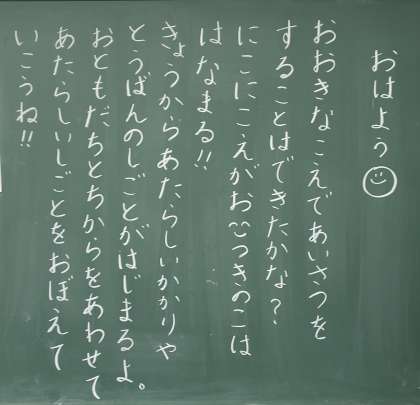 おはよう
おおきなこえであいさつを
することはできたかな？
にこにこえがお つきのこは
はなまる!!
きょうからあたらしいかかりや
とうばんのしごとがはじまるよ。
おともだちとちからをあわせて
あたらしいしごとをおぼえて
いこうね!!